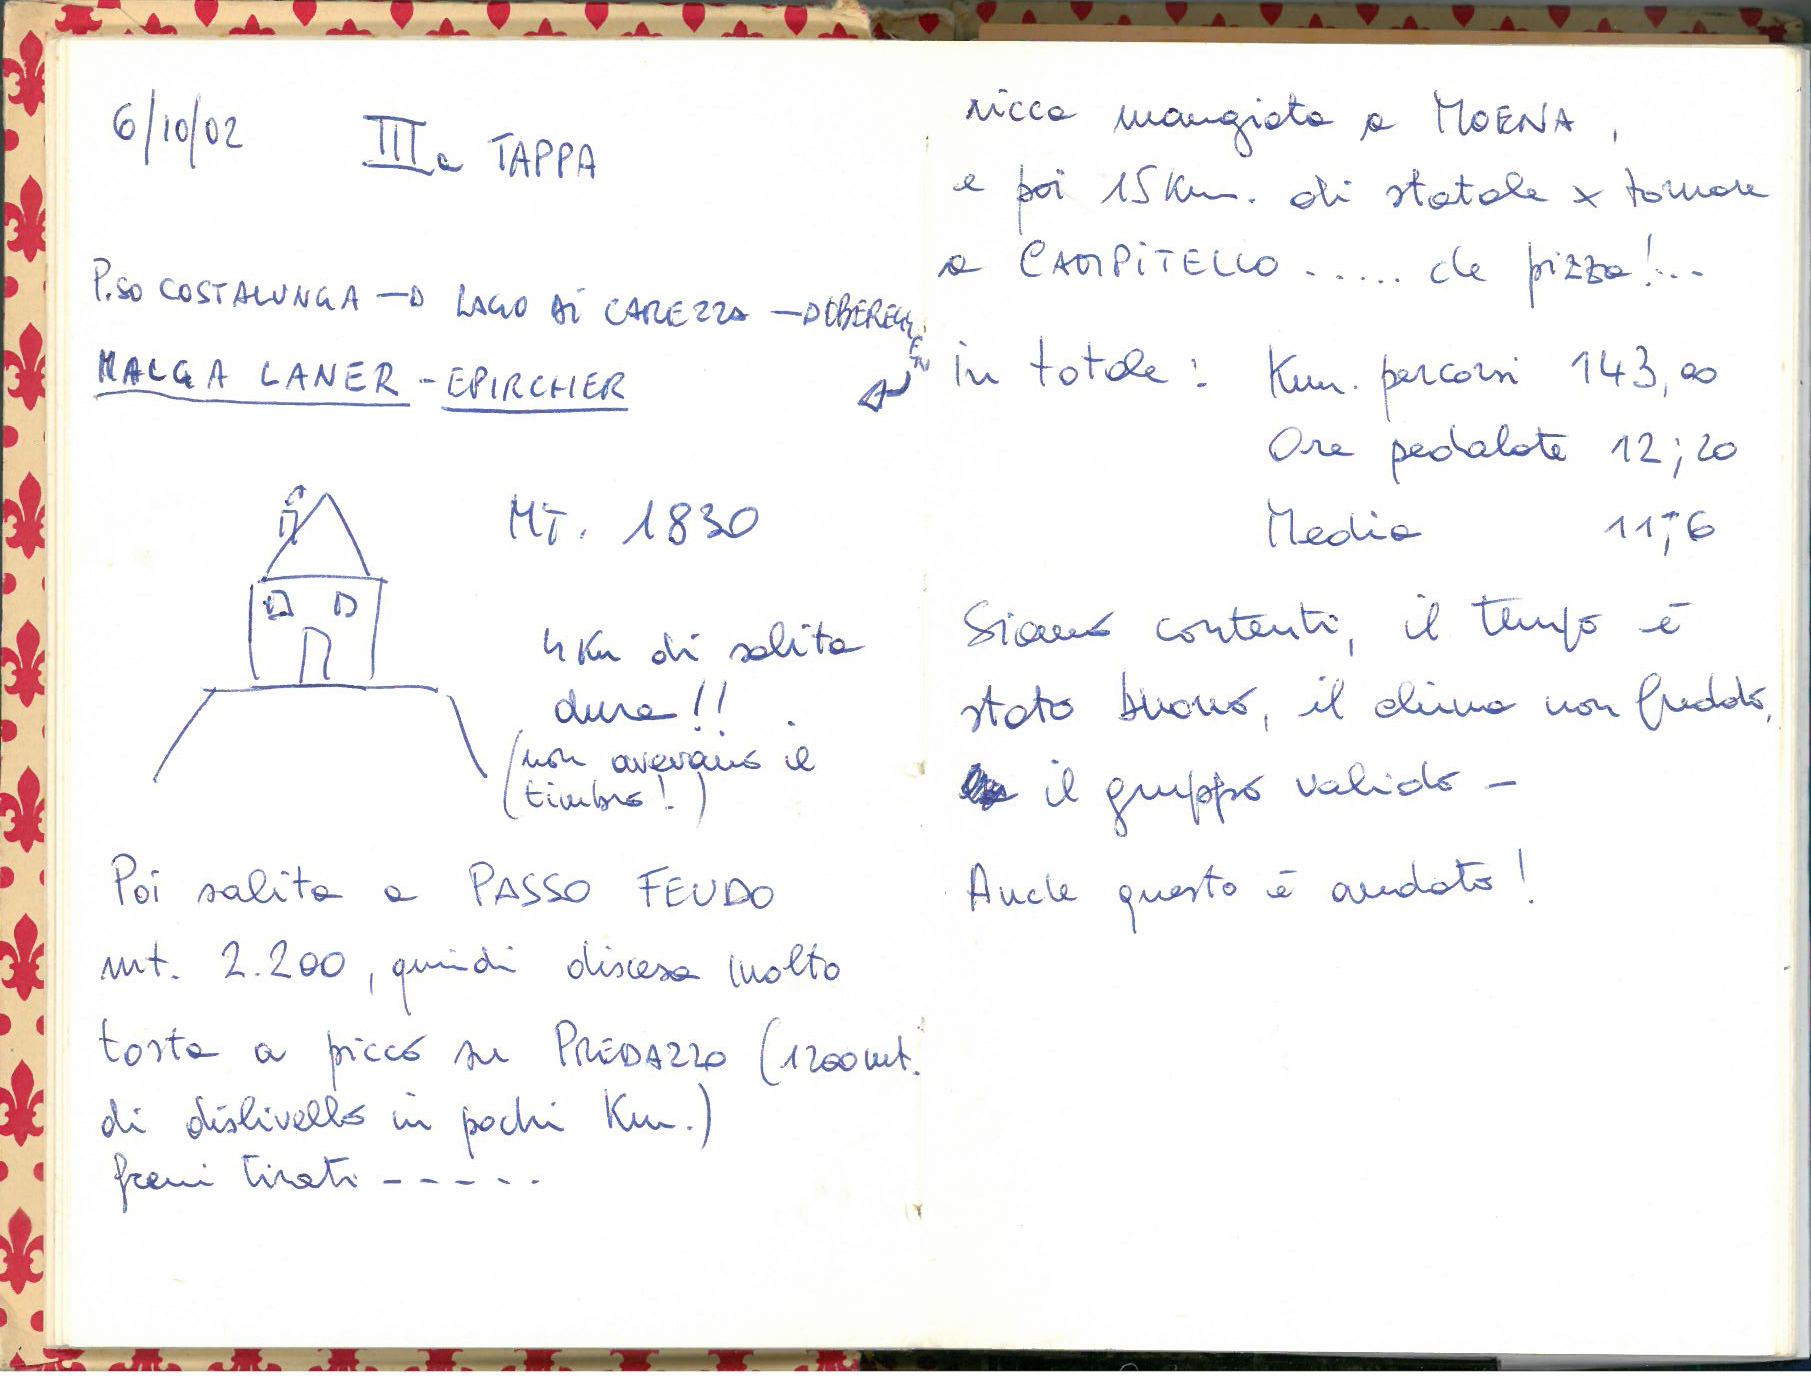 6/10/02
IIIa TAPPA
P.SO COSTALUNGA → LAGO DI CAREZZA → OBEREGGEN
MALGA LANER - EPIRCHER
MT. 1830
4 Km di salita
dura!!
(non avevano il
timbro!)
Poi salita a PASSO FEUDO
mt. 2.200, quindi discesa molto
tosta a picco su PREDAZZO (1200 mt.
di dislivello in pochi Km.)
freni tirati - - - - -
ricca mangiata a MOENA,
e poi 15 Km. di statale x tornare
a CAMPITELLO ..... che pizza!...
in totale: Km. percorsi 143,00
Ore pedalate 12;20
Media 11,6
Siamo contenti, il tempo è
stato buono, il clima non freddo,
il gruppo valido -
Anche questo è andato!